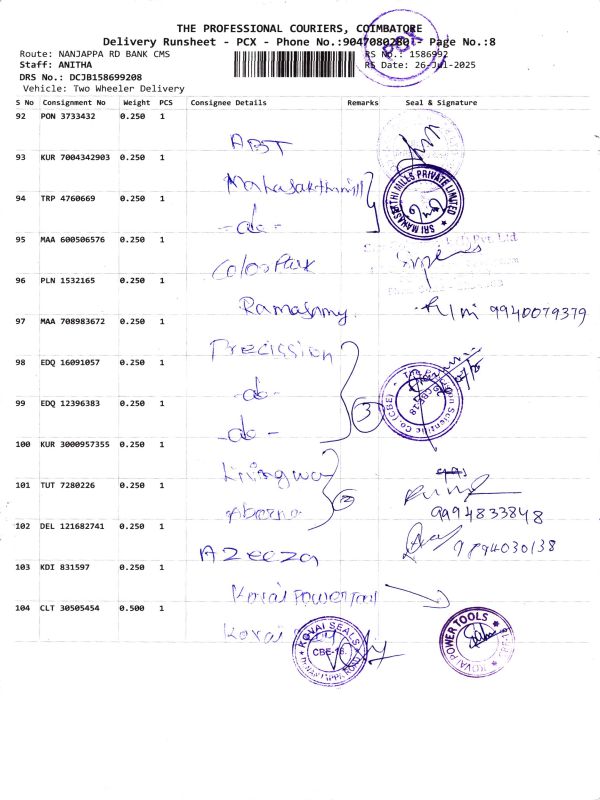 THE PROFESSIONAL COURIERS, COIMBATORE
Delivery Runsheet - PCX - Phone No.:9047080280 - Page No.:8
PCX
Route: NANJAPPA RD BANK CMS RS No.: 1586992
Staff: ANITHA RS Date: 26-Jul-2025
DRS No.: DCJB158699208
Vehicle: Two Wheeler Delivery
S No Consignment No Weight PCS Consignee Details Remarks Seal & Signature
92 PON 3733432 0.250 1
ABT
93 KUR 7004342903 0.250 1
Mahasakthimill
SRI MAHASAKTHI MILLS PRIVATE LIMITED
94 TRP 4760669 0.250 1
-do-
95 MAA 600506576 0.250 1
Pvt. Ltd
Colorflex
96 PLN 1532165 0.250 1
Ramasamy 9940079379
97 MAA 708983672 0.250 1
Precission
98 EDQ 16091057 0.250 1
-do-
3
Scientific Co. (CBE)
CBE-18
99 EDQ 12396383 0.250 1
-do-
100 KUR 3000957355 0.250 1
Livingway
101 TUT 7280226 0.250 1
9994833848
102 DEL 121682741 0.250 1
9894030138
Azeeza
103 KDI 831597 0.250 1
Kovai Powertool
104 CLT 30505454 0.500 1
Kovai
KOVAI SEALS
CBE-18.
KOVAI POWER TOOLS